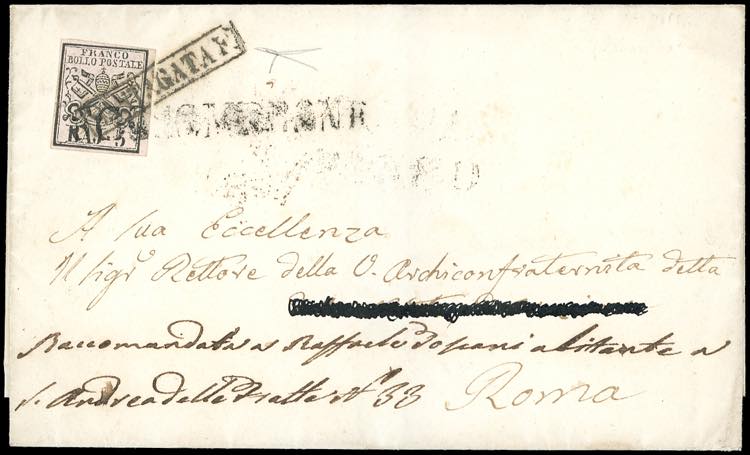 FRANCO
BOLLO POSTALE
BAJ. 5
A Sua Eccellenza
Il Sigr Rettore della V. Archiconfraternita detta
Raccomandata a Raffaele abitante a
S. Andrea delle Fratte N° 33 Roma